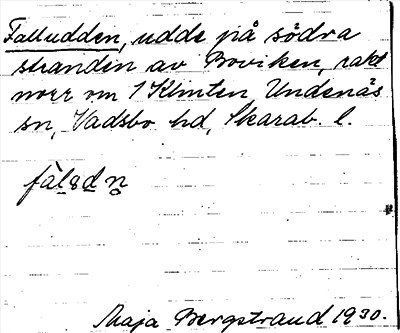 Falludden, udde på södra
stranden av Boviken, rakt
norr om 1 Klinten, Undenäs
sn, Vadsbo hd, Skarab. l.
Maja Bergstrand 1930.